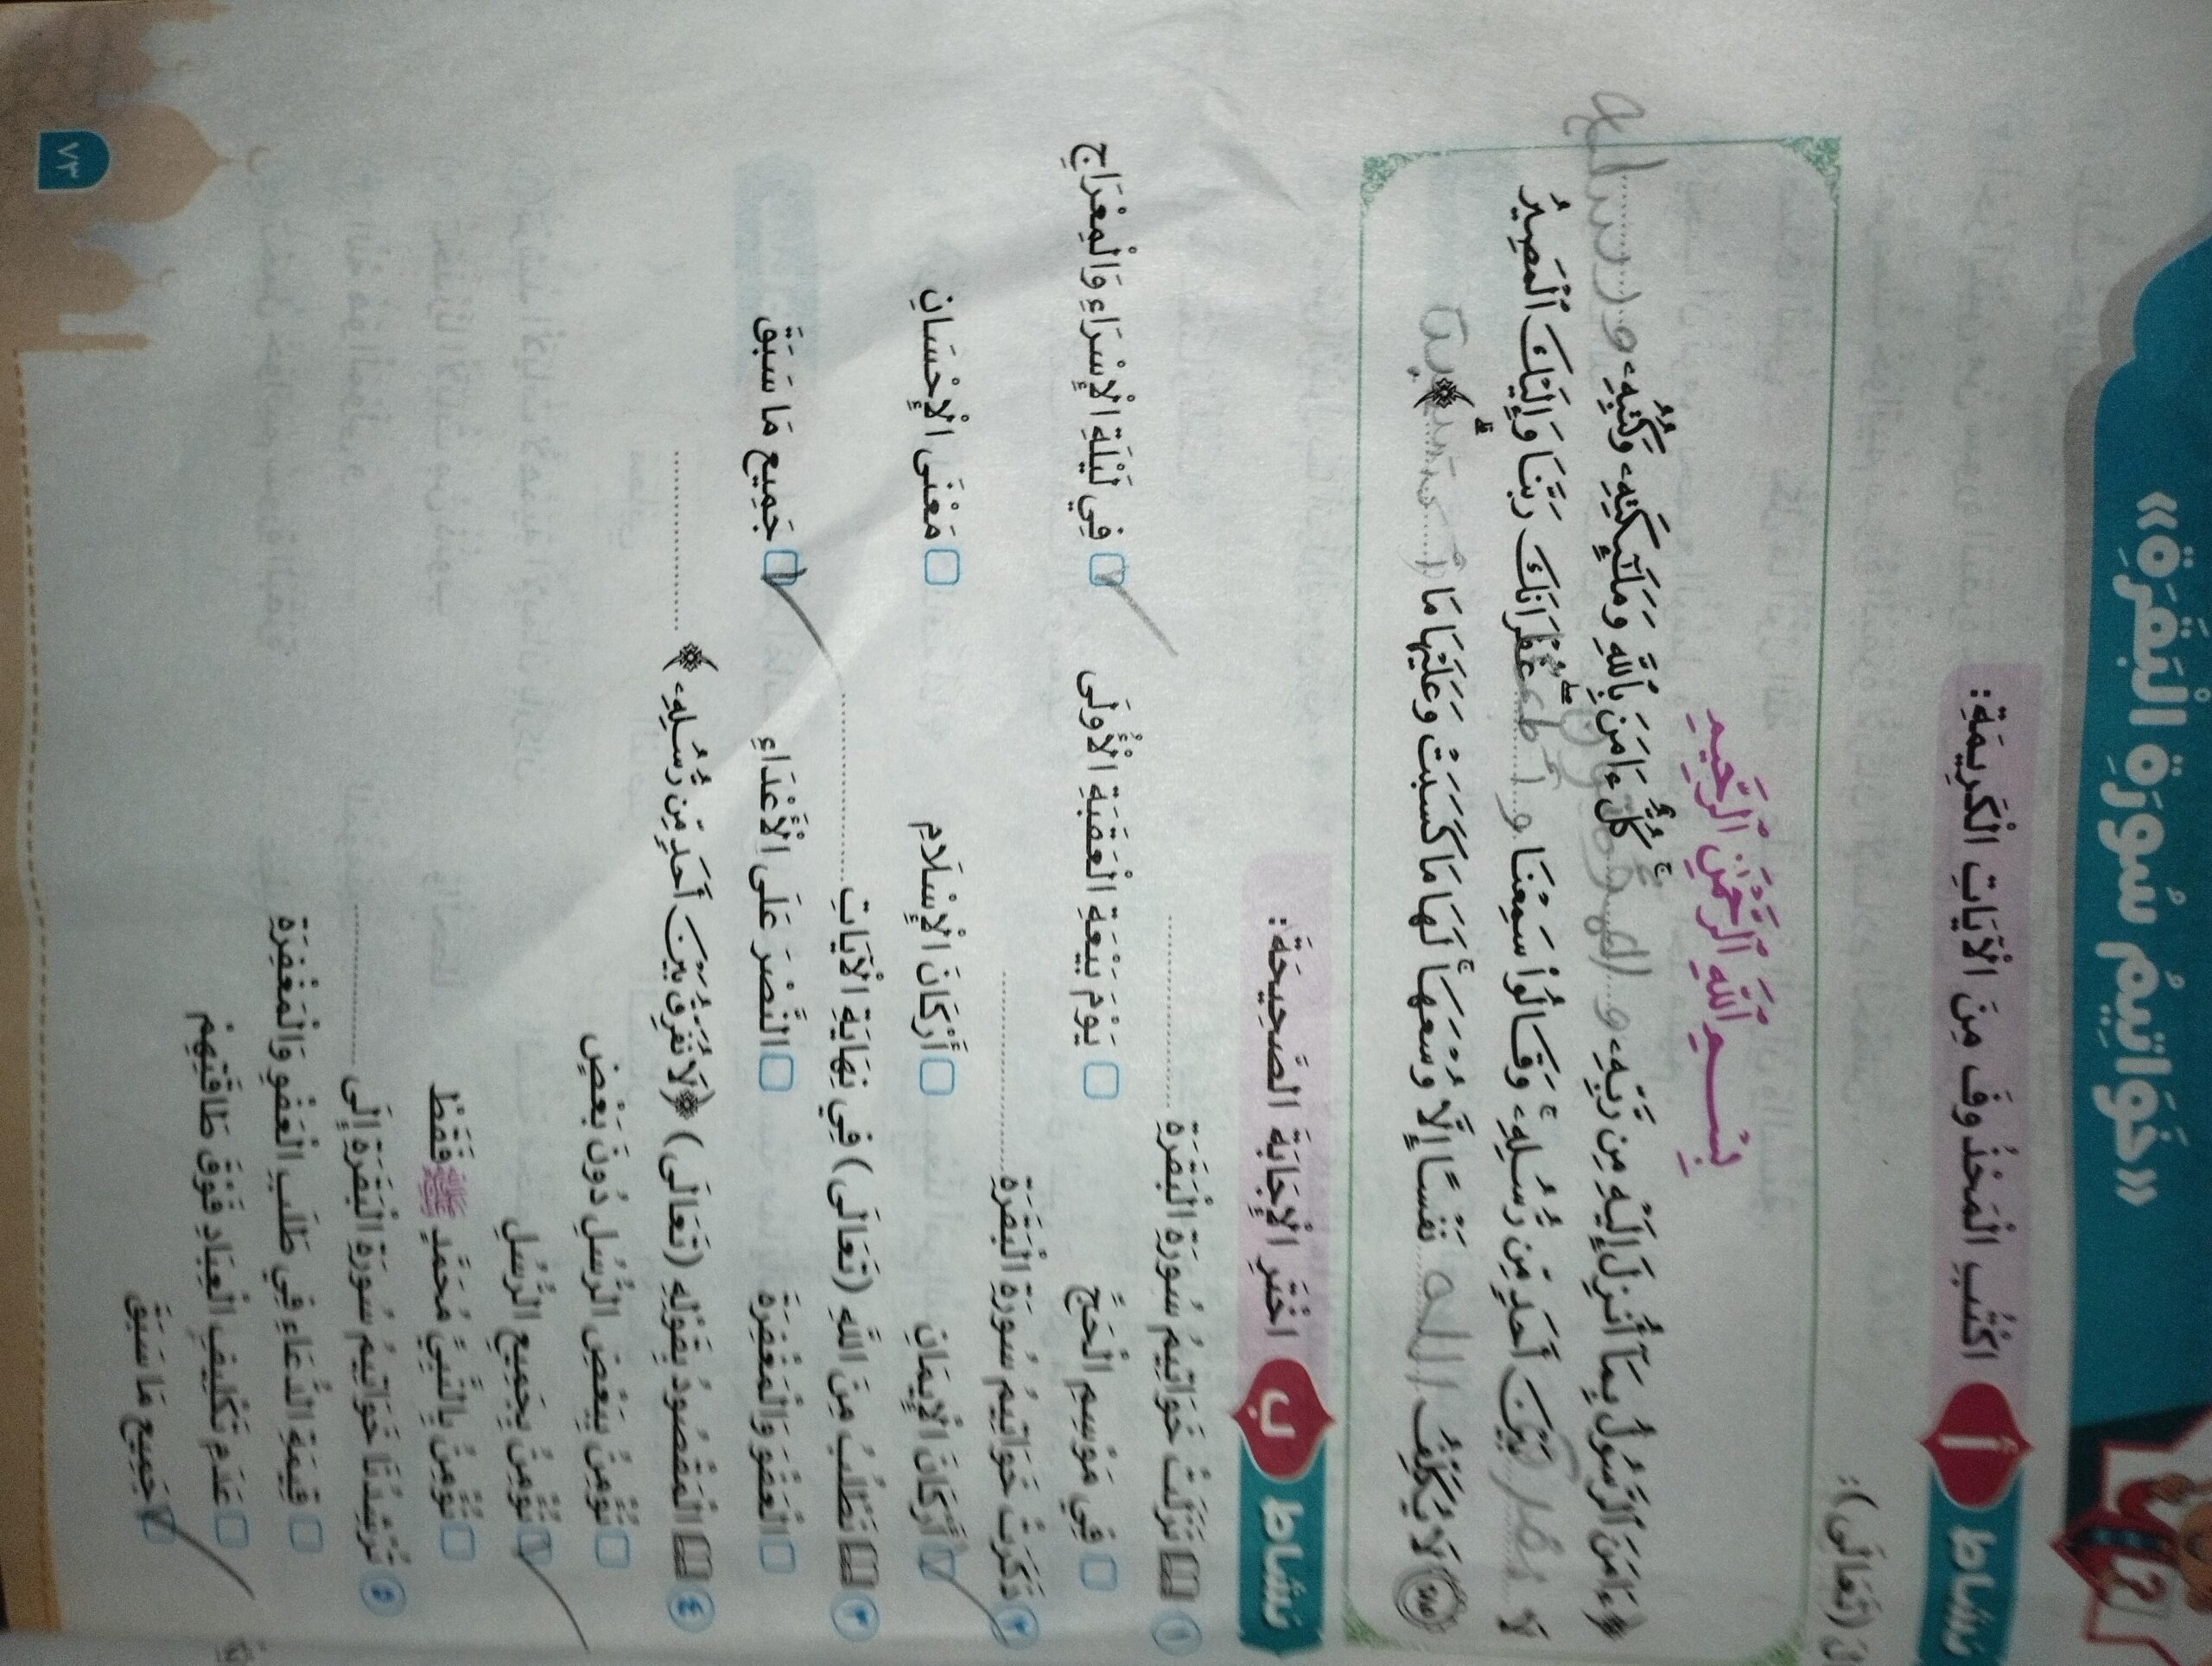 «خَوَاتِيمُ سُورَةِ الْبَقَرَةِ»
نشاط أ اكْتُبِ الْمَحْذُوفَ مِنَ الْآيَاتِ الْكَرِيمَةِ:
(تَعَالَى):
بِسْمِ اللَّهِ الرَّحْمَٰنِ الرَّحِيمِ
﴿ءَامَنَ ٱلرَّسُولُ بِمَآ أُنزِلَ إِلَيْهِ مِن رَّبِّهِۦ و المؤمنون ۚ كُلٌّ ءَامَنَ بِٱللَّهِ وَمَلَٰٓئِكَتِهِۦ وَكُتُبِهِۦ و رسله
لَا نفرق بَيْنَ أَحَدٍ مِّن رُّسُلِهِۦ ۚ وَقَالُوا۟ سَمِعْنَا و اطعنا ۖ غُفْرَانَكَ رَبَّنَا وَإِلَيْكَ ٱلْمَصِيرُ
٢٨٥ لَا يُكَلِّفُ الله نَفْسًا إِلَّا وُسْعَهَا ۚ لَهَا مَا كَسَبَتْ وَعَلَيْهَا مَا ۗ﴾
نشاط ب اخْتَرِ الْإِجَابَةَ الصَّحِيحَةَ:
١ نَزَلَتْ خَوَاتِيمُ سُورَةِ الْبَقَرَةِ ....................
فِي مَوْسِمِ الْحَجِّ يَوْمَ بَيْعَةِ الْعَقَبَةِ الْأُولَى فِي لَيْلَةِ الْإِسْرَاءِ وَالْمِعْرَاجِ
٢ ذَكَرَتْ خَوَاتِيمُ سُورَةِ الْبَقَرَةِ ....................
أَرْكَانَ الْإِيمَانِ أَرْكَانَ الْإِسْلَامِ مَعْنَى الْإِحْسَانِ
٣ نَطْلُبُ مِنَ اللَّهِ (تَعَالَى) فِي نِهَايَةِ الْآيَاتِ ....................
الْعَفْوَ وَالْمَغْفِرَةَ النَّصْرَ عَلَى الْأَعْدَاءِ جَمِيعَ مَا سَبَقَ
٤ الْمَقْصُودُ بِقَوْلِهِ (تَعَالَى) ﴿لَا نُفَرِّقُ بَيْنَ أَحَدٍ مِّن رُّسُلِهِۦ﴾ ....................
نُؤْمِنُ بِبَعْضِ الرُّسُلِ دُونَ بَعْضٍ
نُؤْمِنُ بِجَمِيعِ الرُّسُلِ
نُؤْمِنُ بِالنَّبِيِّ مُحَمَّدٍ ﷺ فَقَطْ
٥ تُرْشِدُنَا خَوَاتِيمُ سُورَةِ الْبَقَرَةِ إِلَى ....................
قِيمَةِ الدُّعَاءِ فِي طَلَبِ الْعَفْوِ وَالْمَغْفِرَةِ
عَدَمِ تَكْلِيفِ الْعِبَادِ فَوْقَ طَاقَتِهِمْ
جَمِيعِ مَا سَبَقَ
٧٣